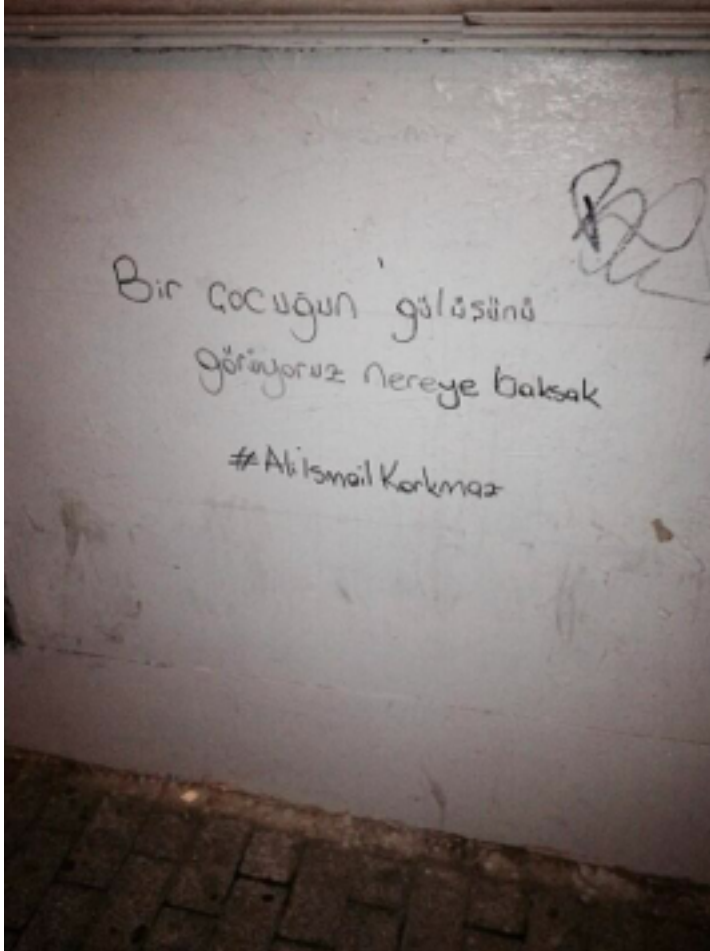 Bir çocuğun gülüşünü
görüyoruz nereye baksak
#AliIsmailKorkmaz